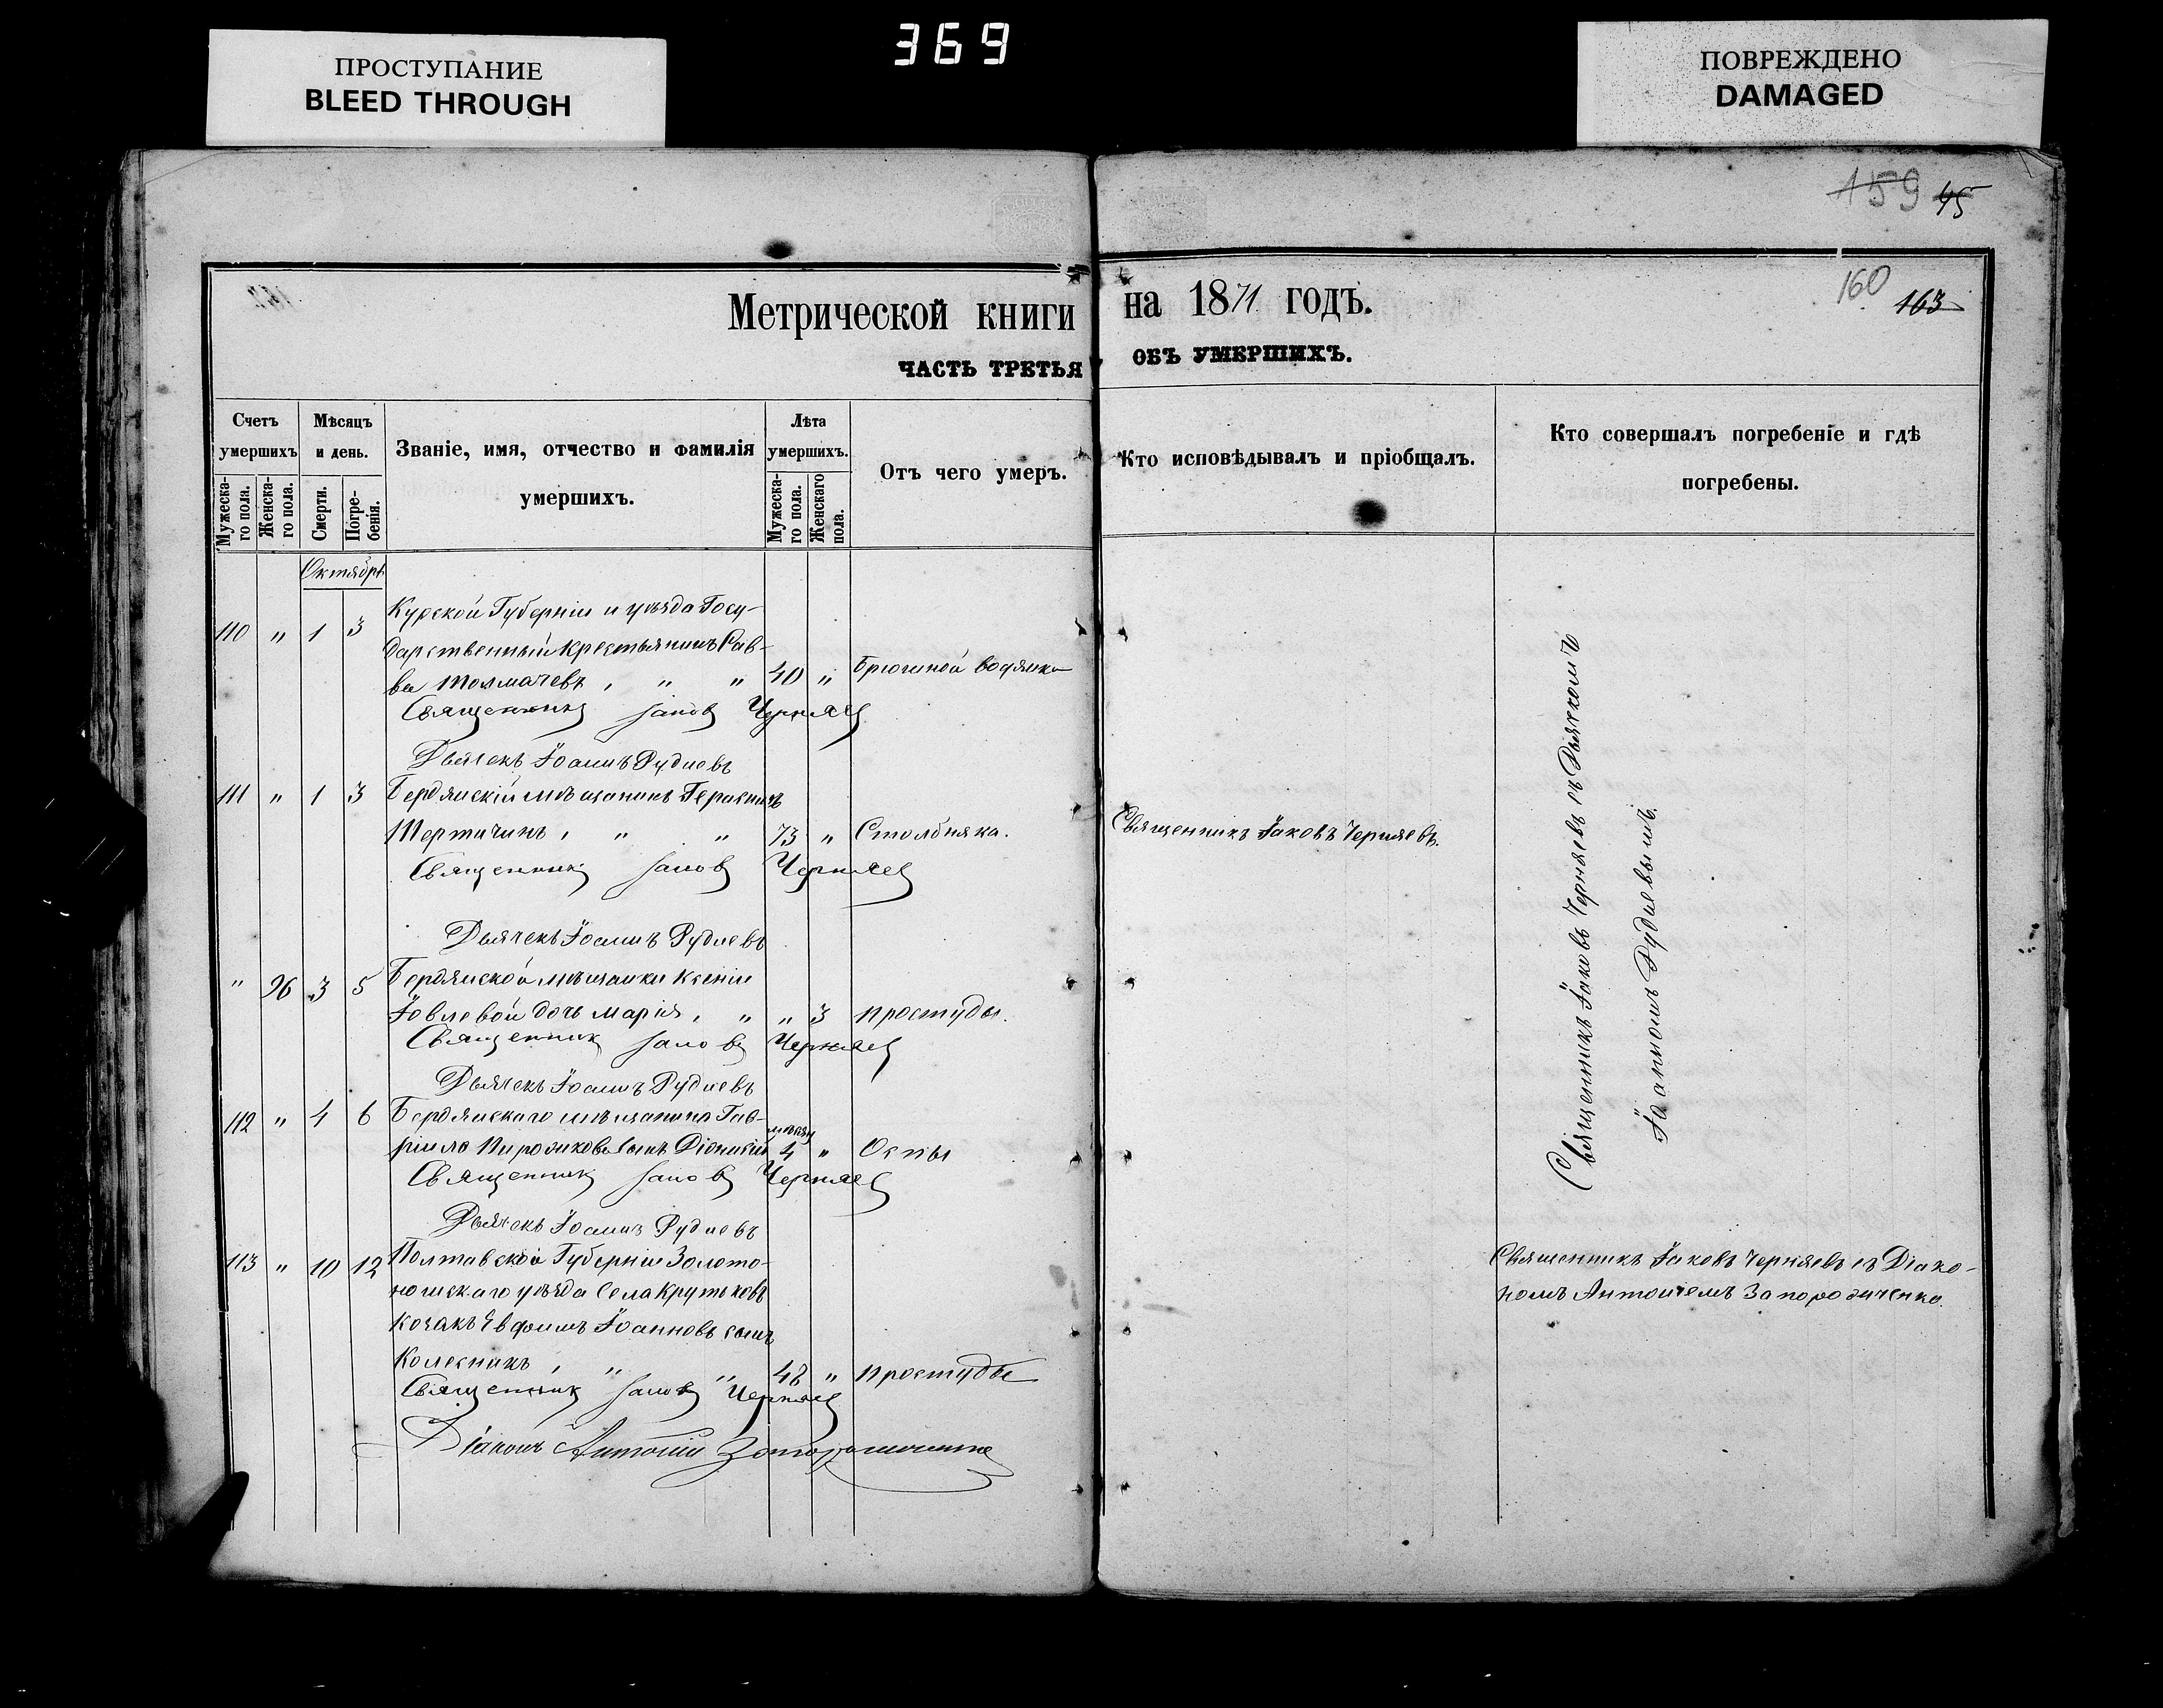 369
ПРОСТУПАНИЕ
BLEED THROUGH
ПОВРЕЖДЕНО
DAMAGED
159 45
160 163
Метрической книги на 1871 годъ.
ЧАСТЬ ТРЕТЬЯ ОБЪ УМЕРШИХЪ.
Счетъ умершихъ
Мужеска-го пола.
Женска-го пола.
Мѣсяцъ и день.
Смерти.
Погре-бенія.
Званіе, имя, отчество и фамилія умершихъ.
Лѣта умершихъ.
Мужеска-го пола.
Женскаго пола.
Отъ чего умеръ.
Кто исповѣдывалъ и пріобщалъ.
Кто совершалъ погребеніе и гдѣ погребены.
Октябрь
110 " 1 3 Курской Губерніи и уѣзда Госу-
дарственный крестьянинъ Сав-
ва Толмачевъ, " " 40 " Брюшной водянки
Священникъ Іаковъ Черняев
Дьячекъ Іоаннъ Рудневъ
111 " 1 3 Бердянскій мѣщанинъ Герасимъ
Тертичинъ, " " 73 " Столбняка. Священникъ Іаковъ Черняевъ.
Священникъ Іаковъ Черняев
Дьячекъ Іоаннъ Рудневъ
" 96 3 5 Бердянской мѣщанки Ксеніи
Іовлевой дочь Марія, " " 3 простуды.
Священник Іаковъ Черняев
Дьячекъ Іоаннъ Рудневъ
112 " 4 6 Бердянскаго мѣщанина Гав-
ріила Пирожкова сынъ Діонисій 4 " Оспы
Священникъ Іаковъ Черняев
Дьячекъ Іоаннъ Рудневъ
Священникъ Іаковъ Черняевъ съ Дьячкомъ
Іоанномъ Рудневымъ.
113 " 10 12 Полтавской Губерніи Золото-
ношскаго уѣзда села Крутьковъ
козакъ Евфимъ Іоанновъ сынъ
Колесникъ, " " 48 " простуды
Священникъ Іаковъ Черняев
Діаконъ Антоній Запорожченко
Священникъ Іаковъ Черняевъ съ Діако-
номъ Антоніемъ Запорожченко.